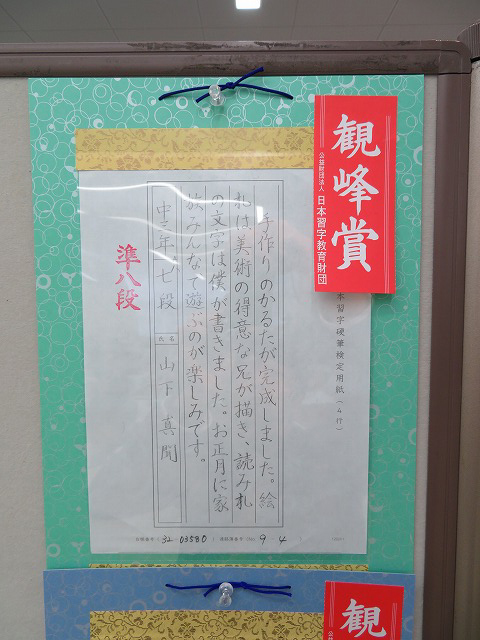 観峰賞
公益財団法人 日本習字教育財団
本習字硬筆検定用紙(4行)
手作りのかるたが完成しました。絵
札は美術の得意な兄が描き、読み札
の文字は僕が書きました。お正月に家
族みんなで遊ぶのが楽しみです。
七段
氏名
山下真聞
準八段
32 03580
9 4
観